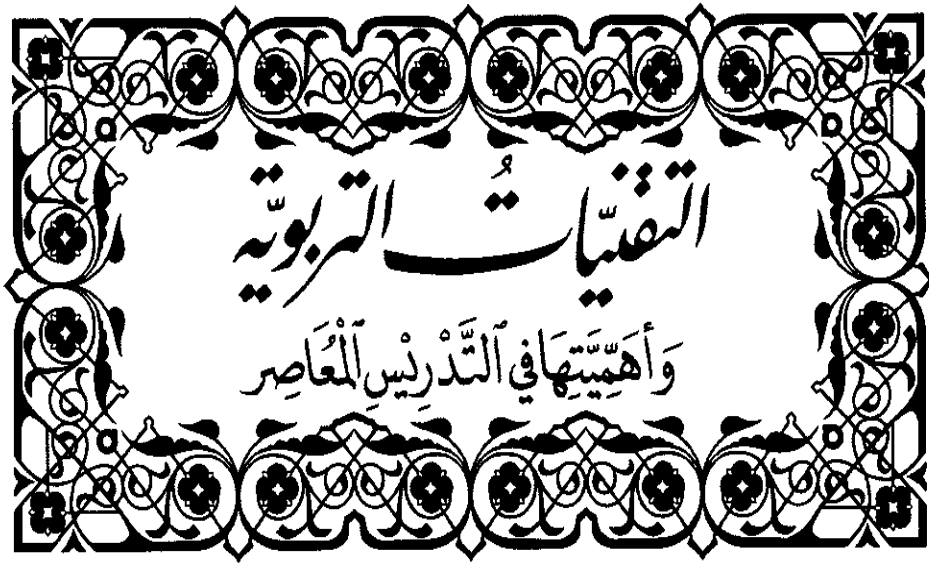 التقنيّاتُ التربويّة
وَأهَمِّيَّتِهَا في ٱلتَّدْرِيْسِ ٱلْمُعَاصِر